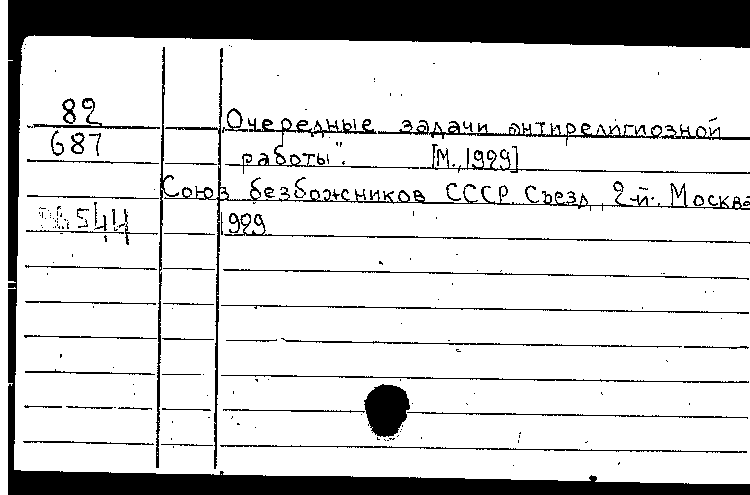 82
687
Очередные задачи антирелигиозной
работы". [М., 1929]
Союз безбожников СССР. Съезд, 2-й. Москва
1929
544